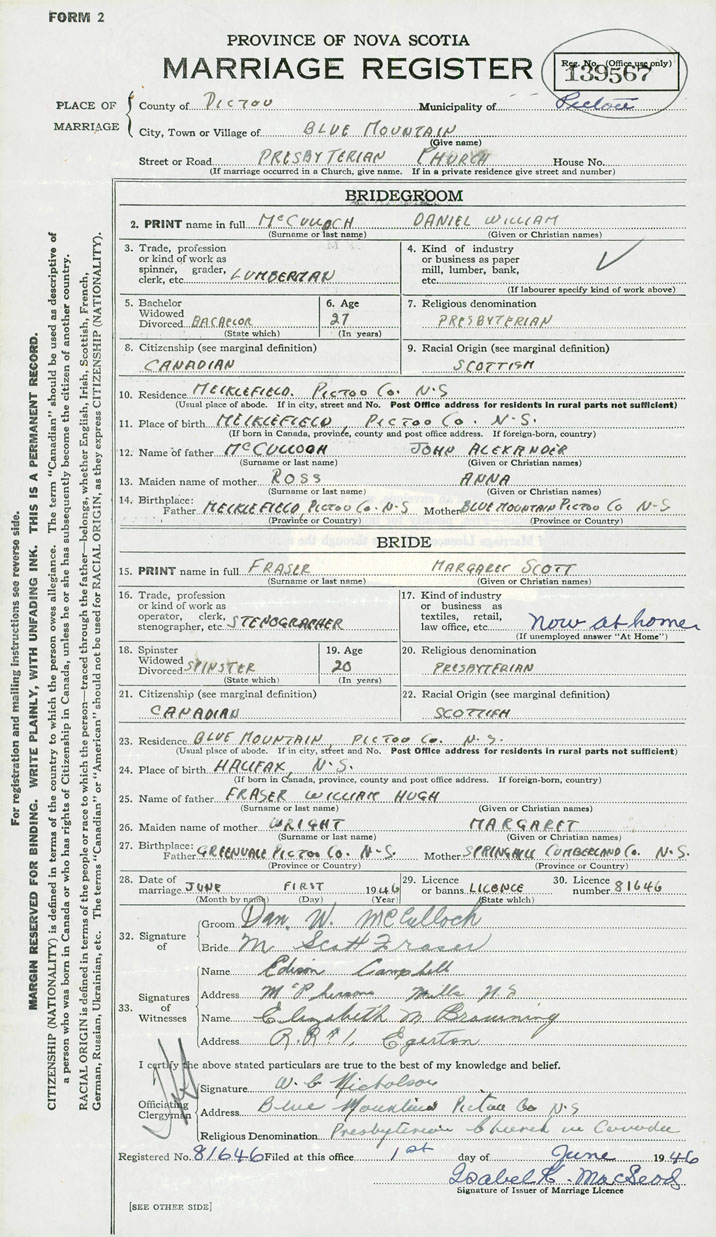 FORM 2
PROVINCE OF NOVA SCOTIA
MARRIAGE REGISTER
Reg. No. (Office use only)
139567
PLACE OF MARRIAGE
County of PICTOU Municipality of Pictou
City, Town or Village of BLUE MOUNTAIN
(Give name)
Street or Road PRESBYTERIAN CHURCH House No.
(If marriage occurred in a Church, give name. If in a private residence give street and number)
BRIDEGROOM
2. PRINT name in full McCULLOCH DANIEL WILLIAM
(Surname or last name) (Given or Christian names)
3. Trade, profession or kind of work as spinner, grader, clerk, etc. LUMBERMAN
4. Kind of industry or business as paper mill, lumber, bank, etc.
(If labourer specify kind of work above)
5. Bachelor Widowed Divorced BACHELOR
(State which)
6. Age 27
(In years)
7. Religious denomination
PRESBYTERIAN
8. Citizenship (see marginal definition)
CANADIAN
9. Racial Origin (see marginal definition)
SCOTTISH
10. Residence MEIKLEFIELD. PICTOU CO. N-S
(Usual place of abode. If in city, street and No. Post Office address for residents in rural parts not sufficient)
11. Place of birth MEIKLEFIELD, PICTOU CO. N-S.
(If born in Canada, province, county and post office address. If foreign-born, country)
12. Name of father McCULLOCH JOHN ALEXANDER
(Surname or last name) (Given or Christian names)
13. Maiden name of mother ROSS ANNA
(Surname or last name) (Given or Christian names)
14. Birthplace:
Father MEIKLEFIELD, PICTOU CO. N-S Mother BLUE MOUNTAIN PICTOU CO N-S
(Province or Country) (Province or Country)
BRIDE
15. PRINT name in full FRASER MARGARET SCOTT
(Surname or last name) (Given or Christian names)
16. Trade, profession or kind of work as operator, clerk, stenographer, etc. STENOGRAPHER
17. Kind of industry or business as textiles, retail, law office, etc. now at home
(If unemployed answer "At Home")
18. Spinster Widowed Divorced SPINSTER
(State which)
19. Age 20
(In years)
20. Religious denomination
PRESBYTERIAN
21. Citizenship (see marginal definition)
CANADIAN
22. Racial Origin (see marginal definition)
SCOTTISH
23. Residence BLUE MOUNTAIN, PICTOU CO. N-S.
(Usual place of abode. If in city, street and No. Post Office address for residents in rural parts not sufficient)
24. Place of birth HALIFAX, N-S.
(If born in Canada, province, county and post office address. If foreign-born, country)
25. Name of father FRASER WILLIAM HUGH
(Surname or last name) (Given or Christian names)
26. Maiden name of mother WRIGHT MARGARET
(Surname or last name) (Given or Christian names)
27. Birthplace:
Father GREENVALE PICTOU CO. N-S Mother SPRINGHILL CUMBERLAND CO. N-S.
(Province or Country) (Province or Country)
28. Date of marriage JUNE FIRST 1946
(Month by name) (Day) (Year)
29. Licence or banns LICENCE
(State which)
30. Licence number 81646
32. Signature of
Groom Dan. W. McCulloch
Bride M Scott Fraser
33. Signatures of Witnesses
Name Edison Campbell
Address McPhersons Mills N S
Name Elizabeth M Browning
Address R.R #1, Egerton
I certify the above stated particulars are true to the best of my knowledge and belief.
Officiating Clergyman
Signature W. C Nicholson
Address Blue Mountain Pictou Co N-S
Religious Denomination Presbyterian Church in Canada
Registered No. 81646 Filed at this office 1st day of June 1946
Isabel K. MacLeod
Signature of Issuer of Marriage Licence
[SEE OTHER SIDE]
For registration and mailing instructions see reverse side.
MARGIN RESERVED FOR BINDING. WRITE PLAINLY, WITH UNFADING INK. THIS IS A PERMANENT RECORD.
CITIZENSHIP (NATIONALITY) is defined in terms of the country to which the person owes allegiance. The term "Canadian" should be used as descriptive of
a person who was born in Canada or who has rights of Citizenship in Canada, unless he or she has subsequently become the citizen of another country.
RACIAL ORIGIN is defined in terms of the people or race to which the person—traced through the father—belongs, whether English, Irish, Scottish, French,
German, Russian, Ukrainian, etc. The terms "Canadian" or "American" should not be used for RACIAL ORIGIN, as they express CITIZENSHIP (NATIONALITY).